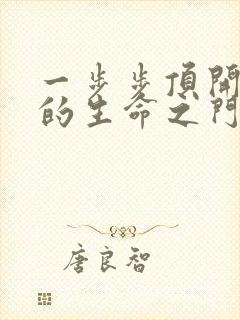 一步步頂開
的生命之門
唐良智